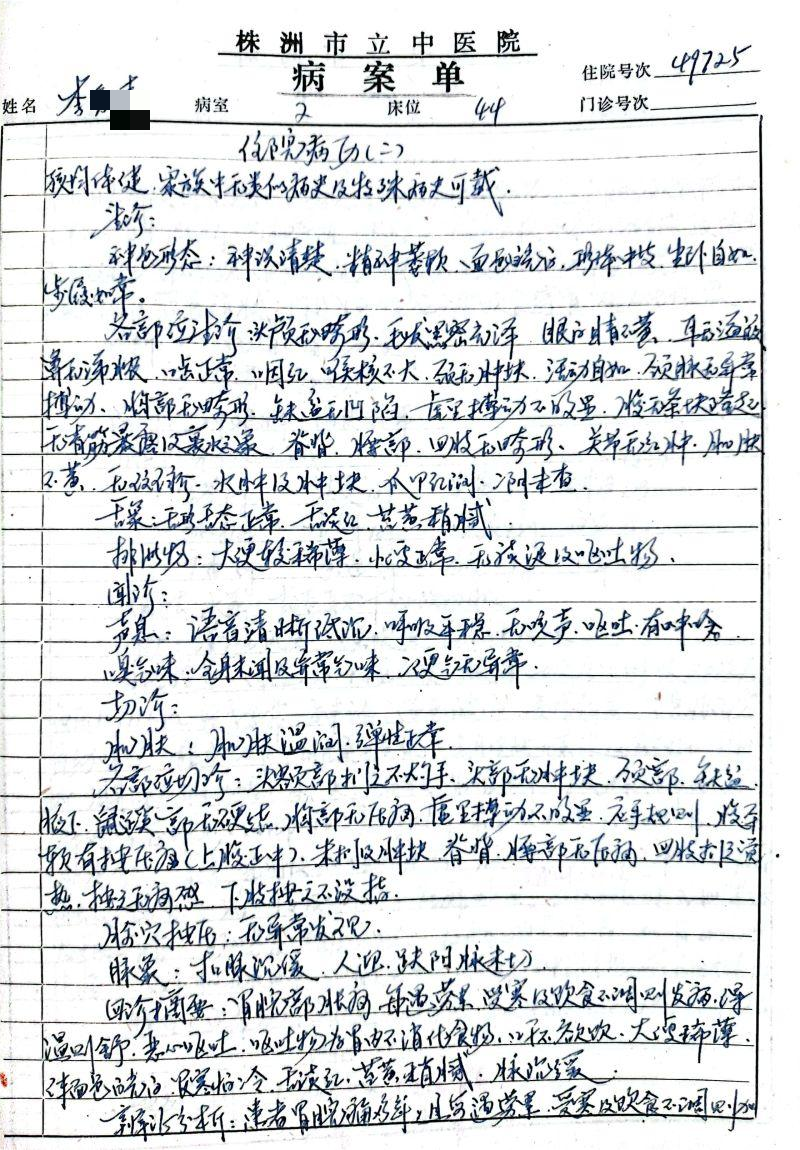 株洲市立中医院
病案单
住院号次 49725
姓名 李 病室 2 床位 44 门诊号次
住院病历(二)
孩均体健,家族中无类似病史及特殊病史可载。
望诊:
神色形态:神识清楚,精神萎软,面色㿠白,形体中枝,坐卧自如,
步履如常。
各部位望诊 头颅无畸形,毛发黑密光泽 眼白睛不黄,耳无溢液
鼻无涕脓,口唇正常,咽红,喉核不大,颈无肿块,活动自如,颈脉无异常
搏动,胸部无畸形,缺盆无凹陷,虚里搏动不明显,腹无条块隆起,
无青筋暴露及,脊背,腰部,四肢无畸形,关节无红肿,肌肤
不黄,无及水肿及肿块,爪甲红润,二阴未查。
舌象:舌形舌态正常,舌淡红,苔黄稍腻。
排出物:大便较稀薄,小便正常,无痰涎及呕吐物。
闻诊:
声息:语音清晰低沉,呼吸平稳,无咳声,呕吐,有
嗅气味,全身未闻及异常气味,二便气无异常。
切诊:
肌肤:肌肤温润,弹性正常。
各部位切诊:头额部扪之不灼手,头部无肿块,颈部,缺盆,
腋下,鼠蹊部无硬结,胸部无压痛,虚里搏动不明显,应手规则,腹平
软有按压痛(上腹正中),未扪及肿块,脊背,腰部无压痛,四肢扪之
热,按之无痛,下肢按之不没指。
腧穴按压:无异常发现。
脉象:扣脉沉缓,人迎,趺阳脉未切。
四诊摘要:胃脘部胀痛,每遇劳累,受寒及饮食不调则发病,得
温则舒,恶心呕吐,呕吐物为胃内不消化食物,口干不欲饮,大便稀薄,
面色㿠白,畏寒怕冷,舌淡红,苔黄稍腻,脉沉缓。
辨证分析:患者胃脘痛多年,且每遇劳累,受寒及饮食不调则加